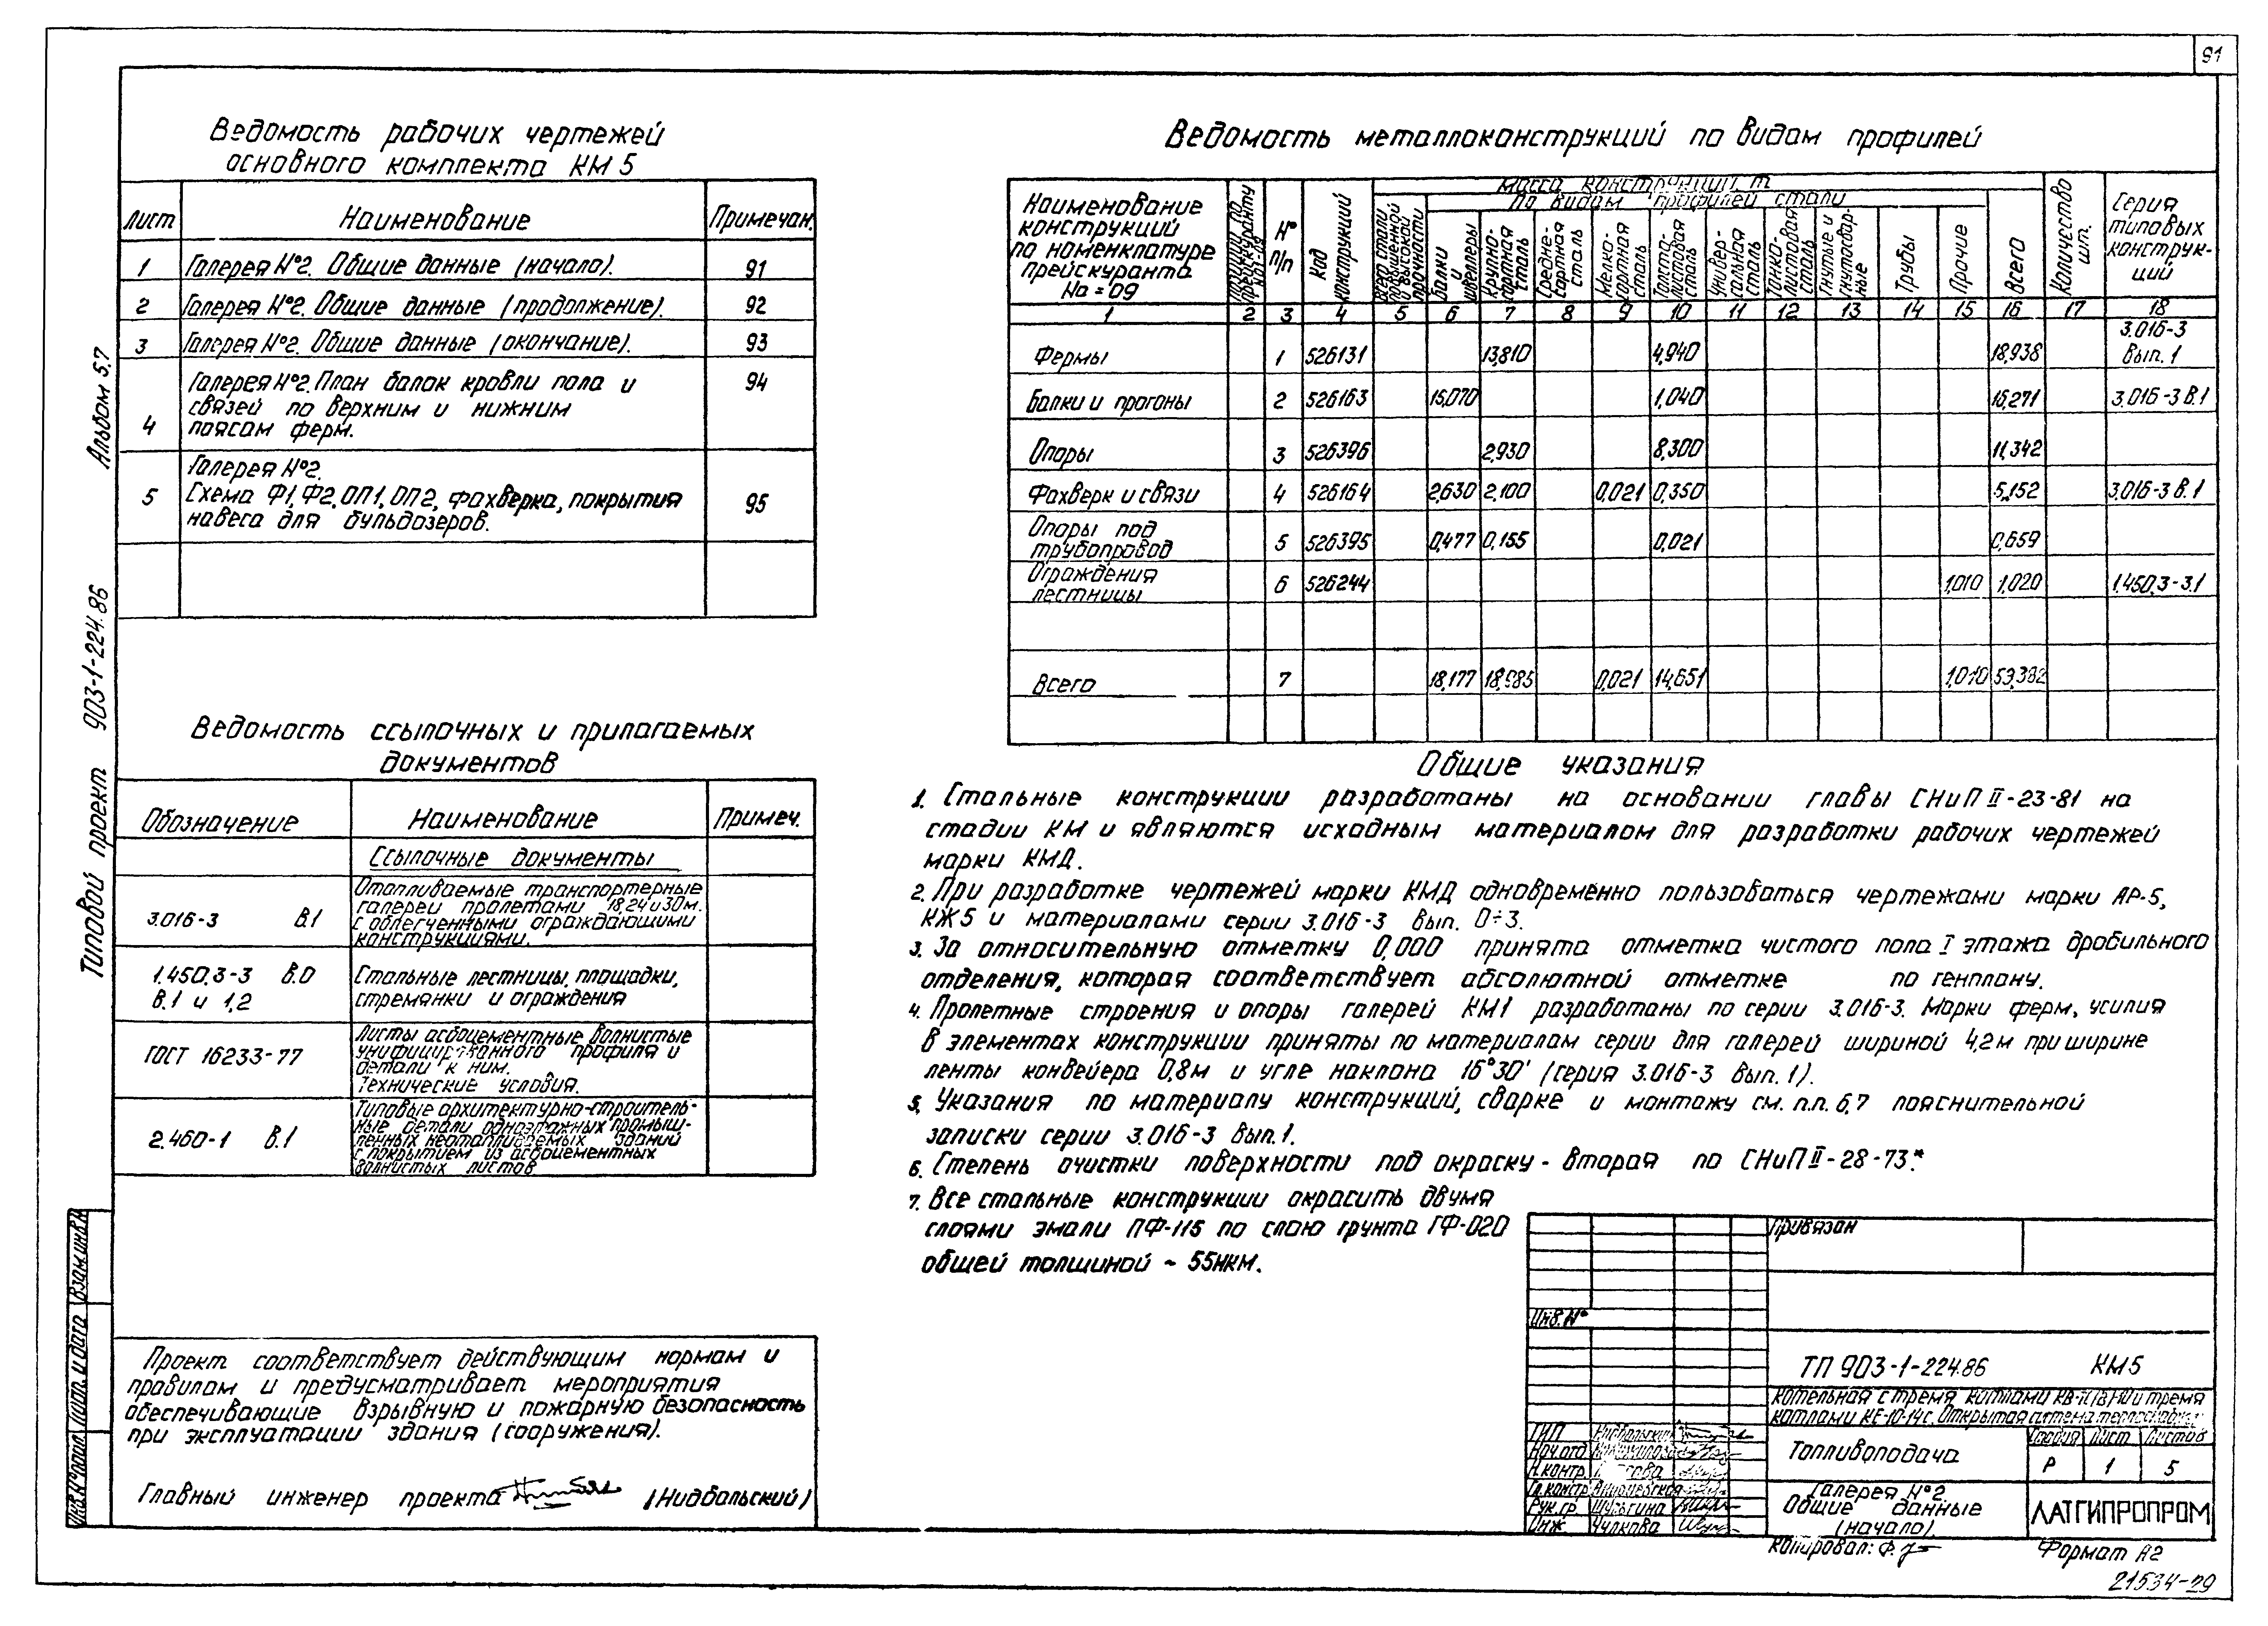 91
Ведомость рабочих чертежей
основного комплекта КМ 5
Лист Наименование Примечан.
1 Галерея №2. Общие данные (начало). 91
2 Галерея №2. Общие данные (продолжение). 92
3 Галерея №2. Общие данные (окончание). 93
4 Галерея №2. План балок кровли пола и 94
связей по верхним и нижним
поясам ферм.
Галерея №2.
5 Схема Ф1, Ф2, ОП1, ОП2, фахверка, покрытия 95
навеса для бульдозеров.
Ведомость металлоконструкций по видам профилей
Наименование
конструкций
по номенклатуре
прейскуранта
№ п/п
Код конструкций
Масса конструкций, т
По видам профилей стали
Всего стали повышенной и высокой прочности
Балки и швеллеры
Крупно-сортная сталь
Средне-сортная сталь
Мелко-сортная сталь
Толсто-листовая сталь
Универ-сальная сталь
Тонко-листовая сталь
Гнутые и гнутосвар-ные
Трубы
Прочие
Всего
Количество шт.
Серия
типовых
конструк-
ций
1 2 3 4 5 6 7 8 9 10 11 12 13 14 15 16 17 18
Фермы 1 526131 13,810 4,940 18,938 3.016-3
Вып. 1
Балки и прогоны 2 526163 15,070 1,040 16,271 3.016-3 В.1
Опоры 3 526396 2,930 8,300 11,342
Фахверк и связи 4 526164 2,630 2,100 0,021 0,350 5,152 3.016-3 В.1
Опоры под
трубопровод 5 526395 0,477 0,155 0,021 0,659
Ограждения
лестницы 6 526244 1,010 1,020 1.450.3-3.1
Всего 7 18,177 18,985 0,021 14,651 1,010 53,382
Ведомость ссылочных и прилагаемых
документов
Обозначение Наименование Примеч.
Ссылочные документы
3.016-3 В.1 Отапливаемые транспортерные
галереи пролетами 18,24 и 30м.
с облегченными ограждающими
конструкциями.
1.450.3-3 В.0 Стальные лестницы, площадки,
В.1 и 1,2 стремянки и ограждения
ГОСТ 16233-77 Листы асбоцементные волнистые
унифицированного профиля и
детали к ним.
Технические условия.
2.460-1 В.1 Типовые архитектурно-строитель-
ные детали одноэтажных промыш-
ленных неотапливаемых зданий
с покрытием из асбоцементных
волнистых листов
Общие указания
1. Стальные конструкции разработаны на основании главы СНиП II-23-81 на
стадии КМ и являются исходным материалом для разработки рабочих чертежей
марки КМД.
2. При разработке чертежей марки КМД одновременно пользоваться чертежами марки АР-5,
КЖ5 и материалами серии 3.016-3 вып. 0÷3.
3. За относительную отметку 0,000 принята отметка чистого пола I этажа дробильного
отделения, которая соответствует абсолютной отметке по генплану.
4. Пролетные строения и опоры галерей КМ1 разработаны по серии 3.016-3. Марки ферм, усилия
в элементах конструкции приняты по материалам серии для галерей шириной 4,2м при ширине
ленты конвейера 0,8м и угле наклона 16°30' (серия 3.016-3 вып. 1).
5. Указания по материалу конструкций, сварке и монтажу см. п.п. 6,7 пояснительной
записки серии 3.016-3 вып.1.
6. Степень очистки поверхности под окраску - вторая по СНиП II-28-73.*
7. Все стальные конструкции окрасить двумя
слоями эмали ПФ-115 по слою грунта ГФ-020
общей толщиной ~ 55мкм.
Проект соответствует действующим нормам и
правилам и предусматривает мероприятия
обеспечивающие взрывную и пожарную безопасность
при эксплуатации здания (сооружения).
Главный инженер проекта (Нидбальский)
Привязан
Инв. №
ТП 903-1-224.86 КМ5
Топливоподача
Стадия Лист Листов
Р 1 5
Галерея №2.
Общие данные
(начало).
ЛАТГИПРОПРОМ
ГИП Нидбальский
Нач.отд
Н.контр
Гл.констр
Рук.гр. Шурыгина
Инж Чулкова
Копировал:
Формат А2
21534-29
Типовой проект 903-1-224.86 Альбом 5.7
Инв.№ подл. Подп. и дата Взам.инв.№